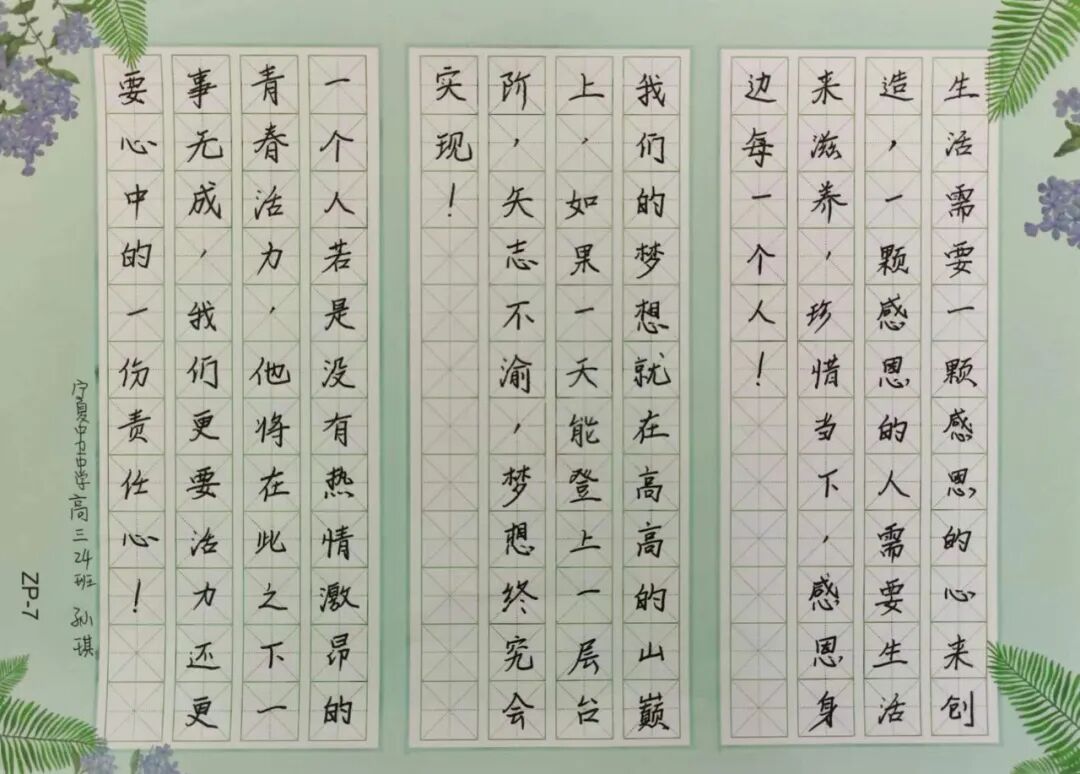 生活需要一颗感恩的心来创
造，一颗感恩的人需要生活
来滋养，珍惜当下，感恩身
边每一个人！
我们的梦想就在高高的山巅
上，如果一天能登上一层台
阶，矢志不渝，梦想终究会
实现！
一个人若是没有热情激昂的
青春活力，他将在此之下一
事无成，我们更要活力还更
要心中的一份责任心！
宁夏中卫中学高三24班 孙琪
ZP-7